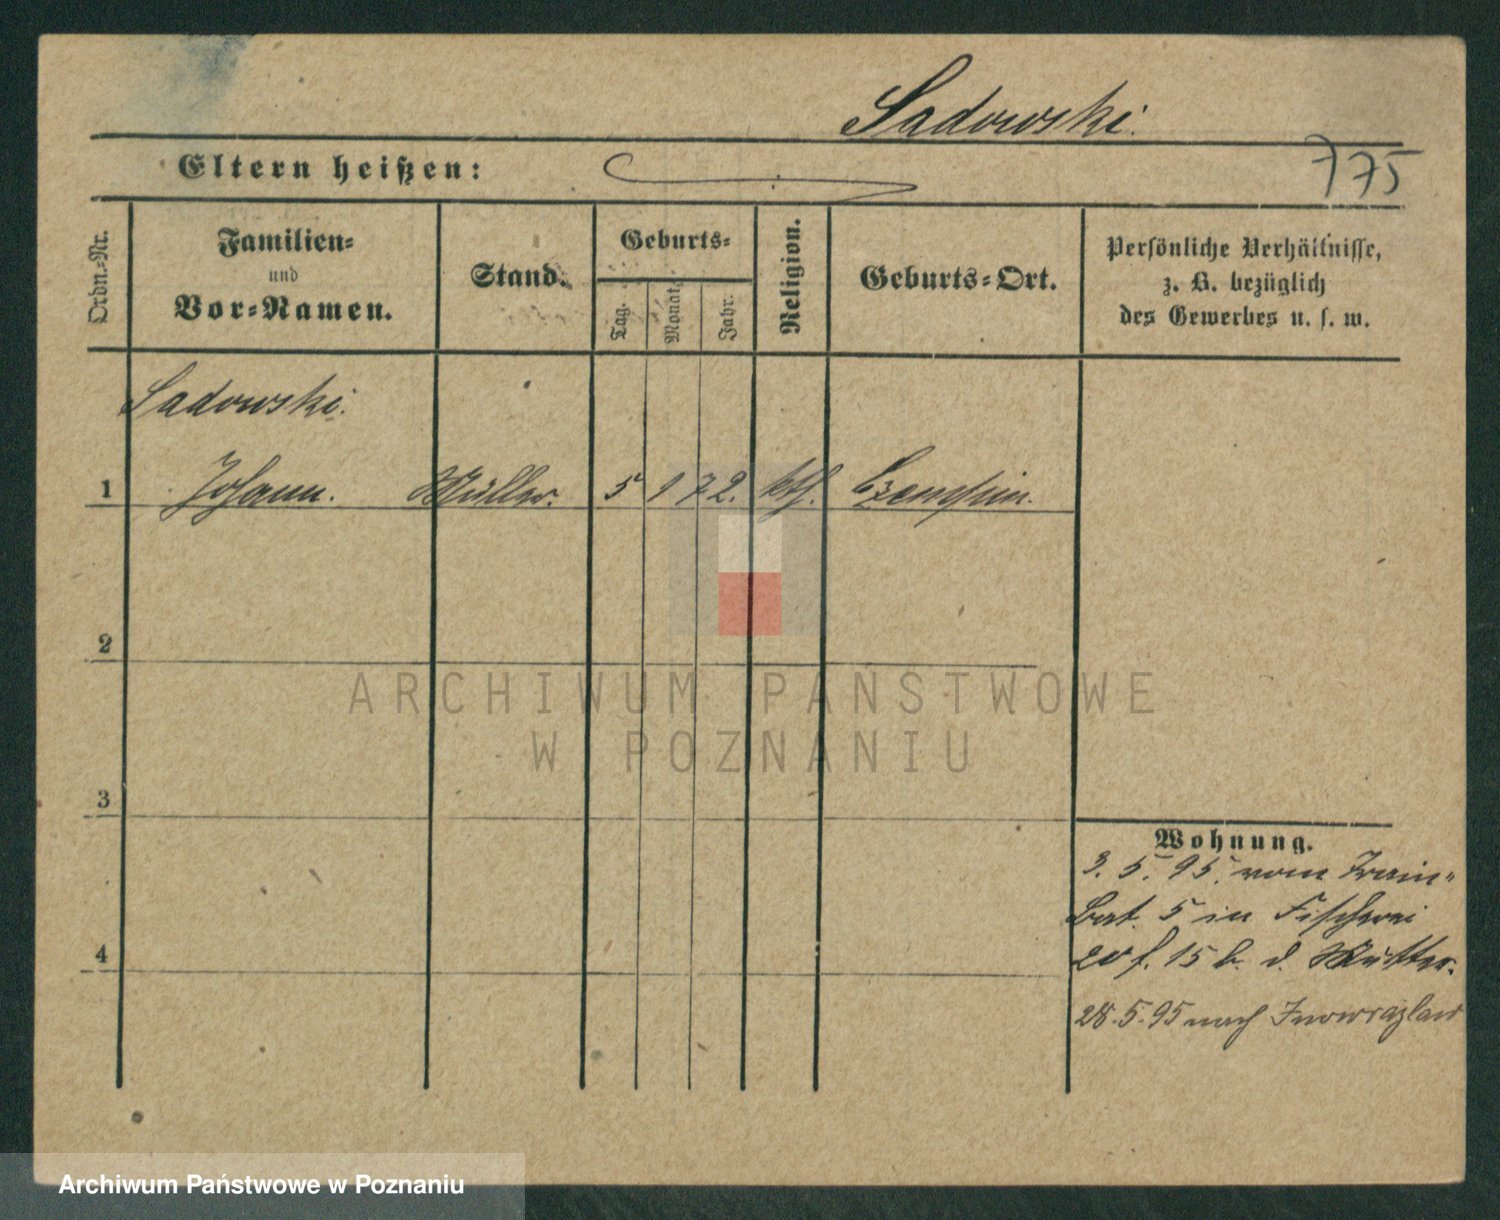 Sadowski.
775
Eltern heißen:
Ordn.-Nr.
Familien-
und
Vor-Namen.
Stand.
Geburts-
Tag.
Monat.
Jahr.
Religion.
Geburts-Ort.
Persönliche Verhältnisse,
z. B. bezüglich
des Gewerbes u. s. w.
Sadowski.
1 Johann. Müller. 5 1 72. kth.
2
3
4
ARCHIWUM PAŃSTWOWE
W POZNANIU
Wohnung.
3. 5. 95. vom Train-
Bat. 5 in Fischerei
20 f. 15 b. d. Mutter.
28.5.95 nach Inowrazlaw
Archiwum Państwowe w Poznaniu